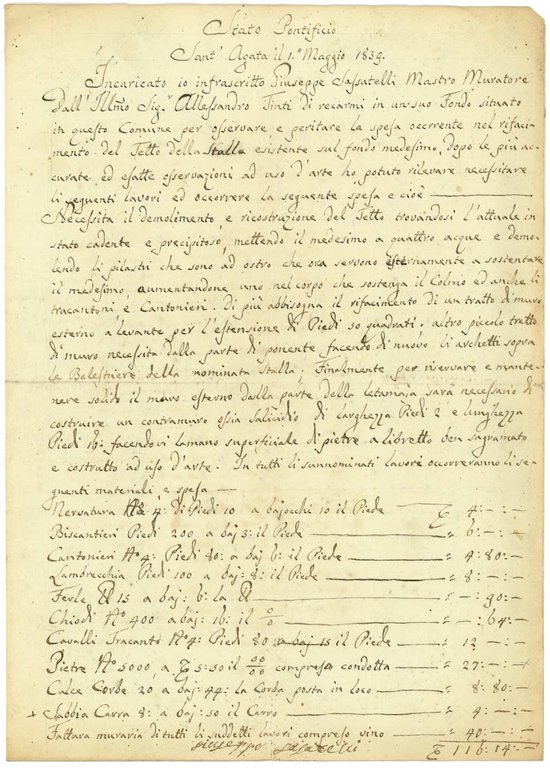 Stato Pontificio
Sant' Agata il 1.° Maggio 1859.
Incaricato io infrascritto Giuseppe Sassatelli Mastro Muratore
Dall' Illmo Sig.r Allessandro Tinti di recarmi in un suo Fondo situato
in questo Comune per osservare e peritare la spesa occrente nel rifaci-
mento del Tetto della Stalla esistente sul fondo medesimo, dopo le più ac-
curate, ed esatte osservazioni ad uso d'arte ho potuto rilevare necessitare
li seguenti lavori ed occorrere la seguente spesa e cioè
Necessita il demolimento e ricostruzione del Tetto trovandosi l'attuale in
stato cadente e precipitoso, mettendo il medesimo a quattro acque e demo-
lendo li pilastri che sono ad ostro che ora servono esternamente a sostentare
il medesimo aumentandone uno nel corpo che sostenga il Colmo ed anche li
tracantoni e Cantonieri. Di più abbisogna il rifacimento di un tratto di muro
esterno a levante per l'estensione di Piedi 50 quadrati, altro piccolo tratto
di muro necessita dalla parte di ponente facendo di nuovo li archetti sopra
le Balestriere della nominata Stalla. Finalmente per riservare e mante-
nere solido il muro esterno dalla parte della letamaja sarà necessario di
costruire un contramuro ossia Salicidio di larghezza Piedi 2 e lunghezza
Piedi 16: facendovi la mano superficiale di pietre a libretto ben sagramato
e costrutto ad uso d'arte. In tutti li sunnominati lavori occorreranno li se-
guenti materiali, e spesa
Nersatura N° 4: di Piedi 10 a bajocchi 10 il Piede 4:-:-
Biscantieri Piedi 200 a baj 3: il Piede 6:-:-
Cantonieri N° 4: Piedi 80: a baj 6: il Piede 4:80:-
Lambrecchia Piedi 100 a baj: 8: il Piede 8:-:-
Ferle 15 a baj: 6: la -:90:-
Chiodi N° 400 a baj: 16: il % -:64:-
Cavalli Tracanto N° 4: Piedi 80 a baj 15 il Piede 12:-:-
Pietre N° 5000, a 5:50 il compresa condotta 27:-:-
Calce Corbe 20 a baj: 44: la Corba posta in loco 8:80:-
+ Sabbia Carra 8: a baj: 50 il Carro 4:-:-
Fattura muraria di tutti li suddetti lavori compreso vino 40:-:-
Giuseppe Sasatelli 116:14:-